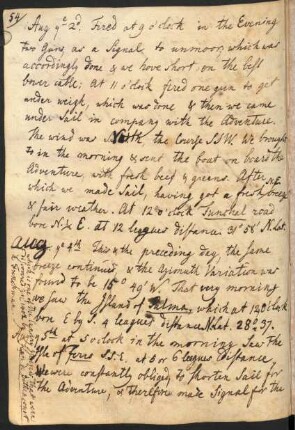 54
Aug ye 2d. Fired at 9 o'clock in the Evening
two guns, as a Signal to unmoor, which was
accordingly done & we hove short on the best
bower cable; At 11 o'clock fired one gun to get
under weigh, which was done & then we came
under Sail in company with the Adventure.
The wind was North the Course SSW. We brought
to in the morning & sent the boat on board the
Adventure, with fresh beef & greens. After
which we made Sail, having got a fresh N.E. breeze
& fair weather. At 12 o'clock Funchal road
bore N.b.E. at 12 leagues distance. 31° 58' N. Lat.
Aug ye 4th. This & the preceding day, the same
breeze continued, & the Azimuth Variation was
found to be 15° 40' W. That very morning
we saw the Island of Palma, which at 12 o'clock
bore E by S. 4 leagues distance N. Lat. 28° 37.
5th at 5 o'clock in the morning Saw the
Isle of Ferro S.S.E. at 5 or 6 leagues distance,
We were constantly obliged to shorten Sail for
the Adventure, & therefore made Signal for the